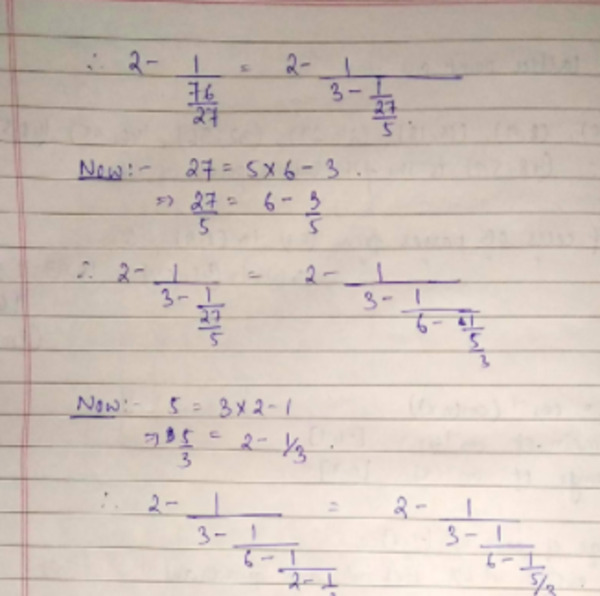 ∴ 2 - 1/(76/27) = 2 - 1/(3 - 1/(27/5)).
Now:- 27 = 5 × 6 - 3.
⇒ 27/5 = 6 - 3/5
∴ 2 - 1/(3 - 1/(27/5)) = 2 - 1/(3 - 1/(6 - 1/(5/3)))
Now:- 5 = 3 × 2 - 1
⇒ 5/3 = 2 - 1/3.
∴ 2 - 1/(3 - 1/(6 - 1/(2 - 1/3))) = 2 - 1/(3 - 1/(6 - 1/(5/3)))